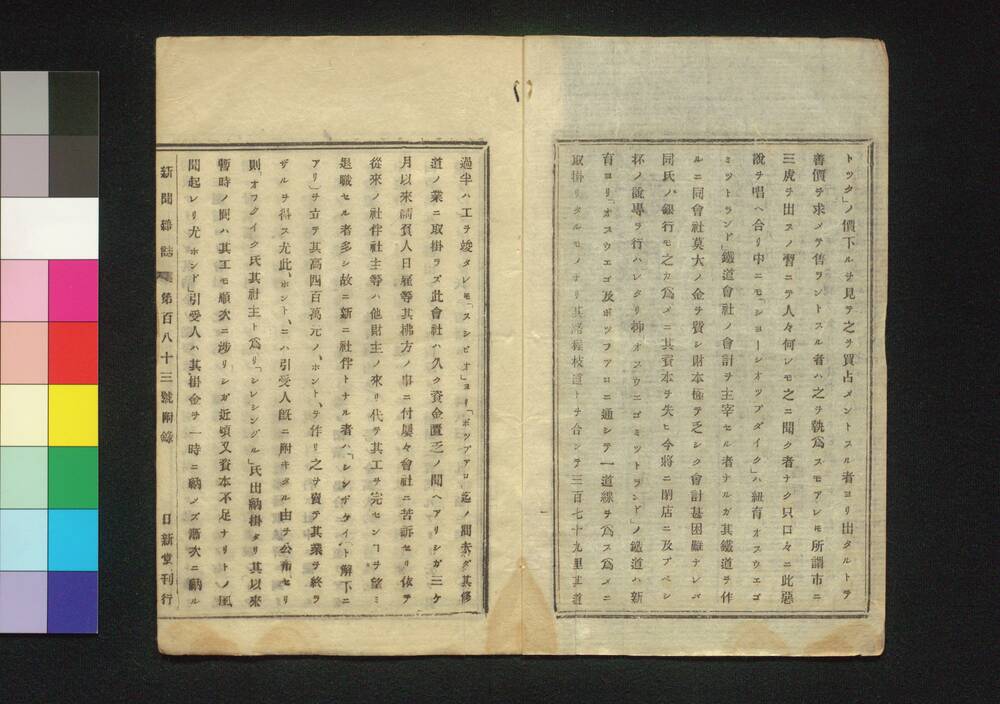 トツク」ノ價下ルヲ見テ之ヲ買占メントスル者ヨリ出タルトテ
善價ヲ求メテ售ラントスル者ハ之ヲ執爲スモアレモ所謂市ニ
三虎ヲ出スノ習ニテ人々何レモ之ニ聞ク者ナク只口々ニ此惡
說ヲ唱ヘ合リ中ニモ「ショーシオツプダイク」ハ紐育オスウエゴ
ミツトランド」鐵道會社ノ會計ヲ主宰セル者ナルガ其鐵道ヲ作
ルニ同會社莫大ノ金ヲ費シ財本極テ乏シク會計甚困難ナレバ
同氏ノ銀行モ之カ爲メニ其資本ヲ失ヒ今將ニ閉店ニ及アベシ
抔ノ說專ラ行ハレタリ抑オスウエゴミツトランド」ノ鐵道ハ新
育ヨリ「オスウエゴ及ボツフアロニ通シテ一道線ヲ爲ス爲メニ
取掛リタルモノナリ其諸枝道トヲ合シテ三百七十九里其道
過半ハ工ヲ竣タレモ「スシピオ」ヨリ「ボツフアロ」迄ノ間未ダ其修
道ノ業ニ取掛ラズ此會社ハ久ク資金匱乏ノ聞ヘアリシガ三ケ
月以來請負人日雇等其拂方ノ事ニ付屢々會社ニ苦訴セリ依テ
從來ノ社伴社主等ハ他財主ノ來リ代テ其工ヲ完センコヲ望ミ
退職セル者多シ故ニ新ニ社伴トナル者ハ「シンヂケイト解下ニ
アリ」ヲ立テ其高四百萬元ノ「ホント」ヲ作リ之ヲ賣テ其業ヲ終ラ
ザルヲ得ス尤此「ホント」ニハ引受人既ニ附キタル由ヲ公布セリ
則「オフクイク氏其社主ト爲リ「レシング」氏出納掛タリ其以來
暫時ノ間ハ其工モ順次ニ涉リシガ近頃又資本不足ナリトノ風
聞起レリ尤ホンド」引受人ハ其掛金ヲ一時ニ納メズ漸次ニ納ル
新聞雜誌 第百八十三號附錄 日新堂刊行